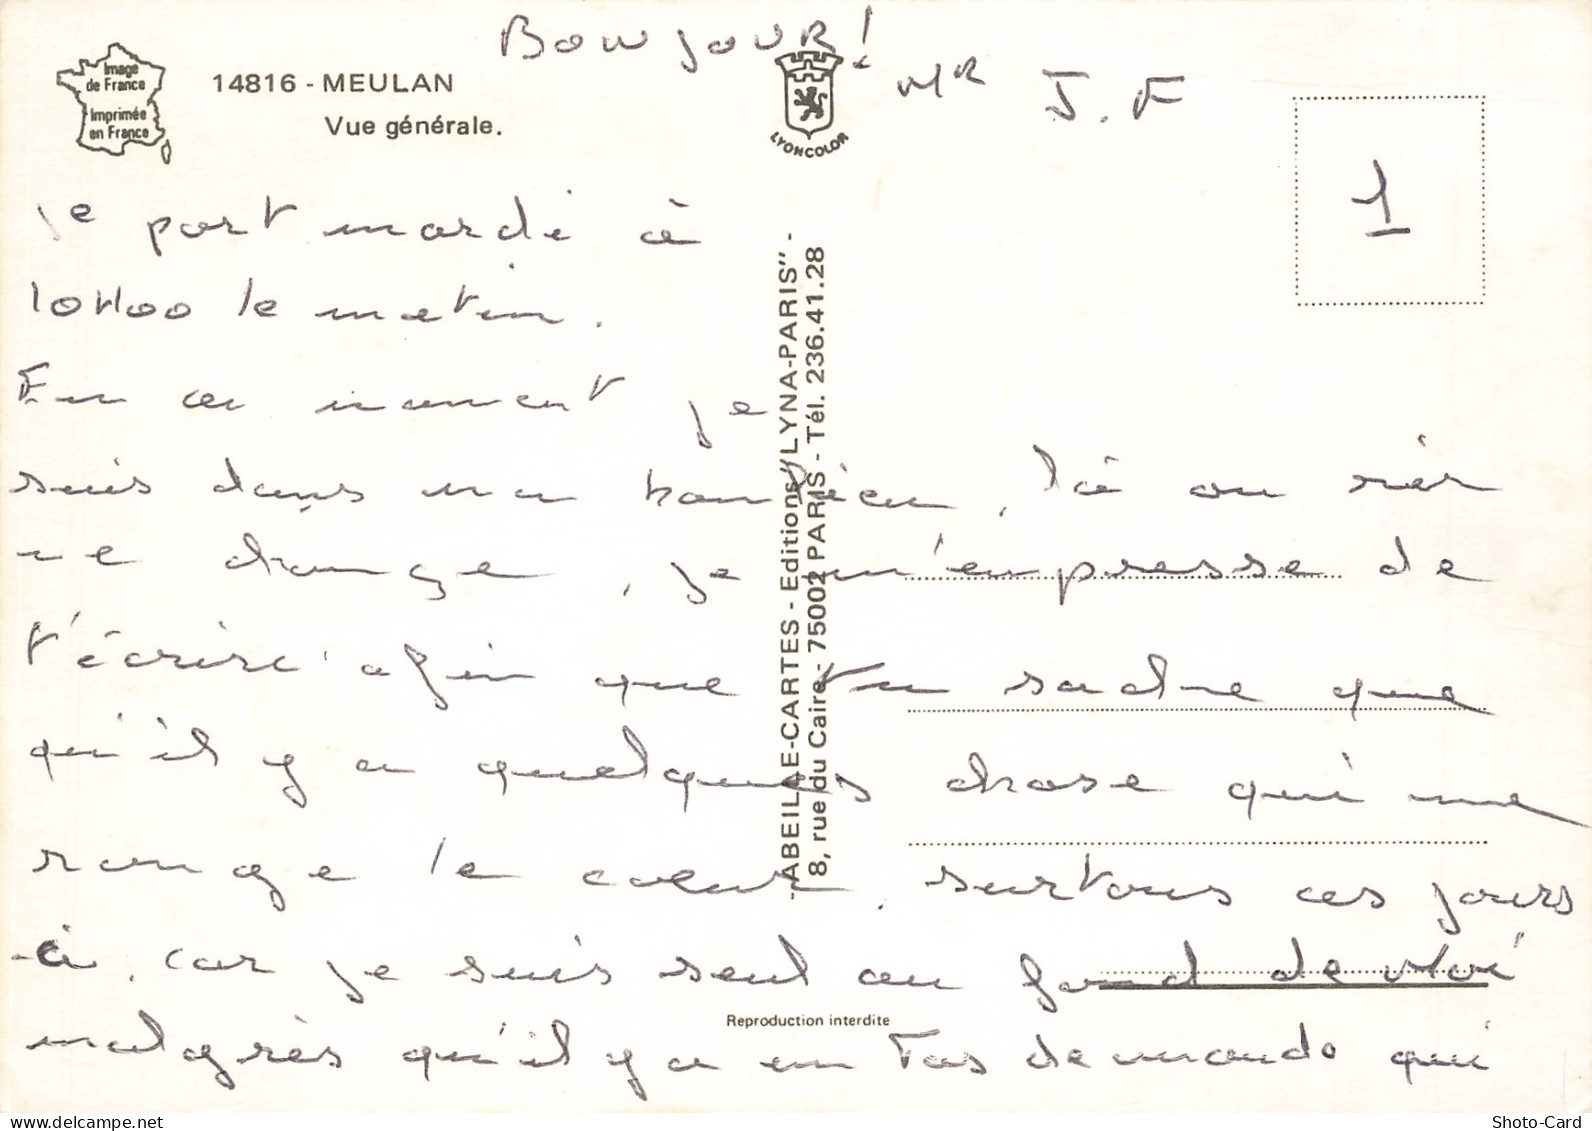 BonjouR! MR J.F
Image
de France
Imprimée
en France
14816 - MEULAN
Vue générale.
LYONCOLOR
1
Je part mardi à
10H00 le matin.
En ce moment je
suis dans ma banlieu, là ou rien
ne change, je m'empresse de
t'écrire afin que tu sache que
qu'il y a quelques chose qui me
ronge le coeur, surtous ces jours
ci, car je suis seul au fond de moi
malgrès qu'il y a un tas de monde qui
ABEILLE-CARTES - Editions "LYNA-PARIS" -
8, rue du Caire - 75002 PARIS - Tél. 236.41.28
Reproduction interdite
delcampe.net
Shoto-Card